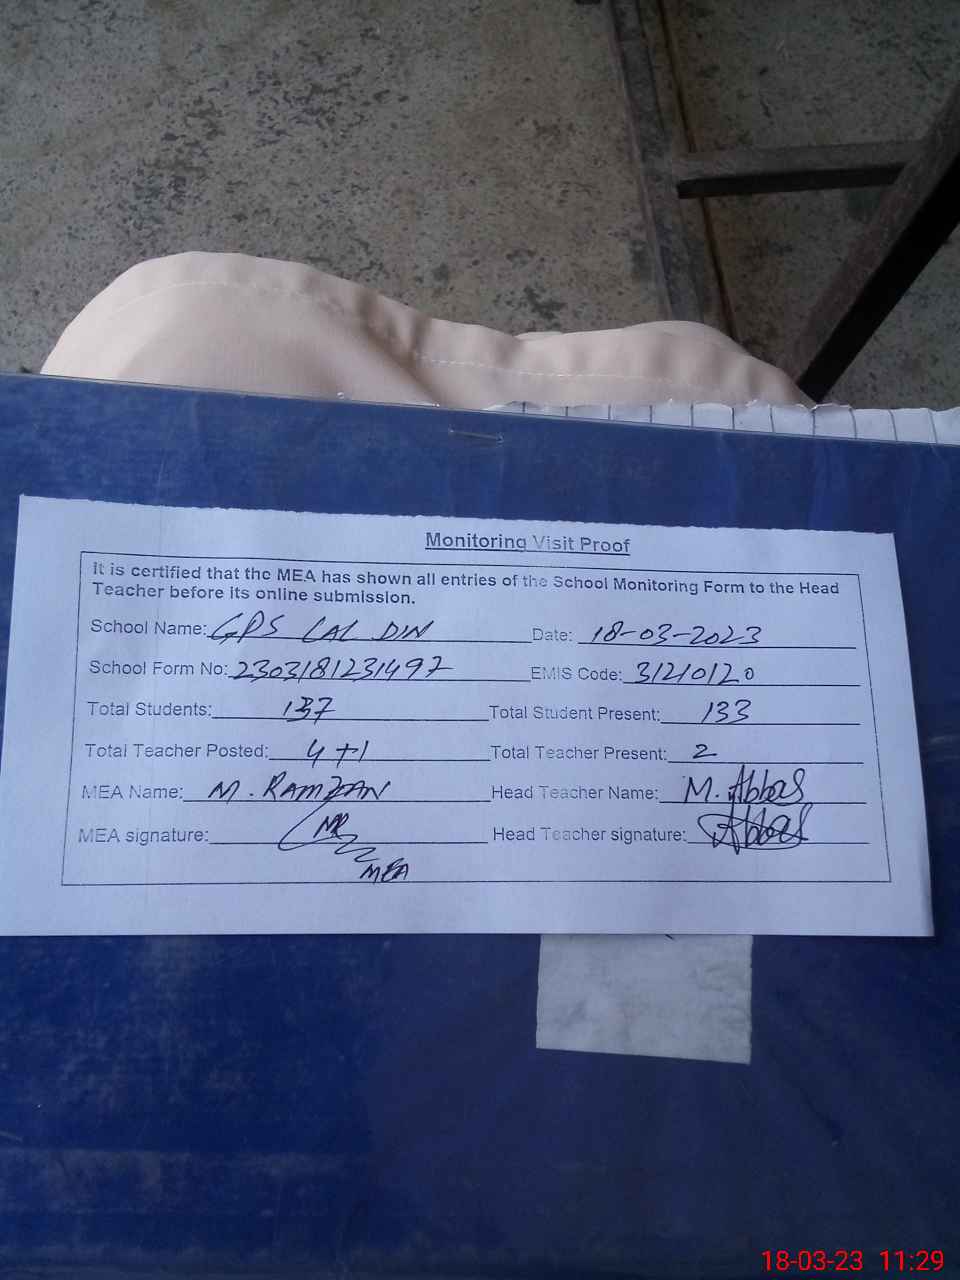 Monitoring Visit Proof
It is certified that the MEA has shown all entries of the School Monitoring Form to the Head
Teacher before its online submission.
School Name: GPS LAL DIN Date: 18-03-2023
School Form No: 2303181231497 EMIS Code: 31210120
Total Students: 137 Total Student Present: 133
Total Teacher Posted: 4+1 Total Teacher Present: 2
MEA Name: M. RAMZAN Head Teacher Name: M. Abbas
MEA signature: MR Head Teacher signature: Abbas
MEA
18-03-23 11:29